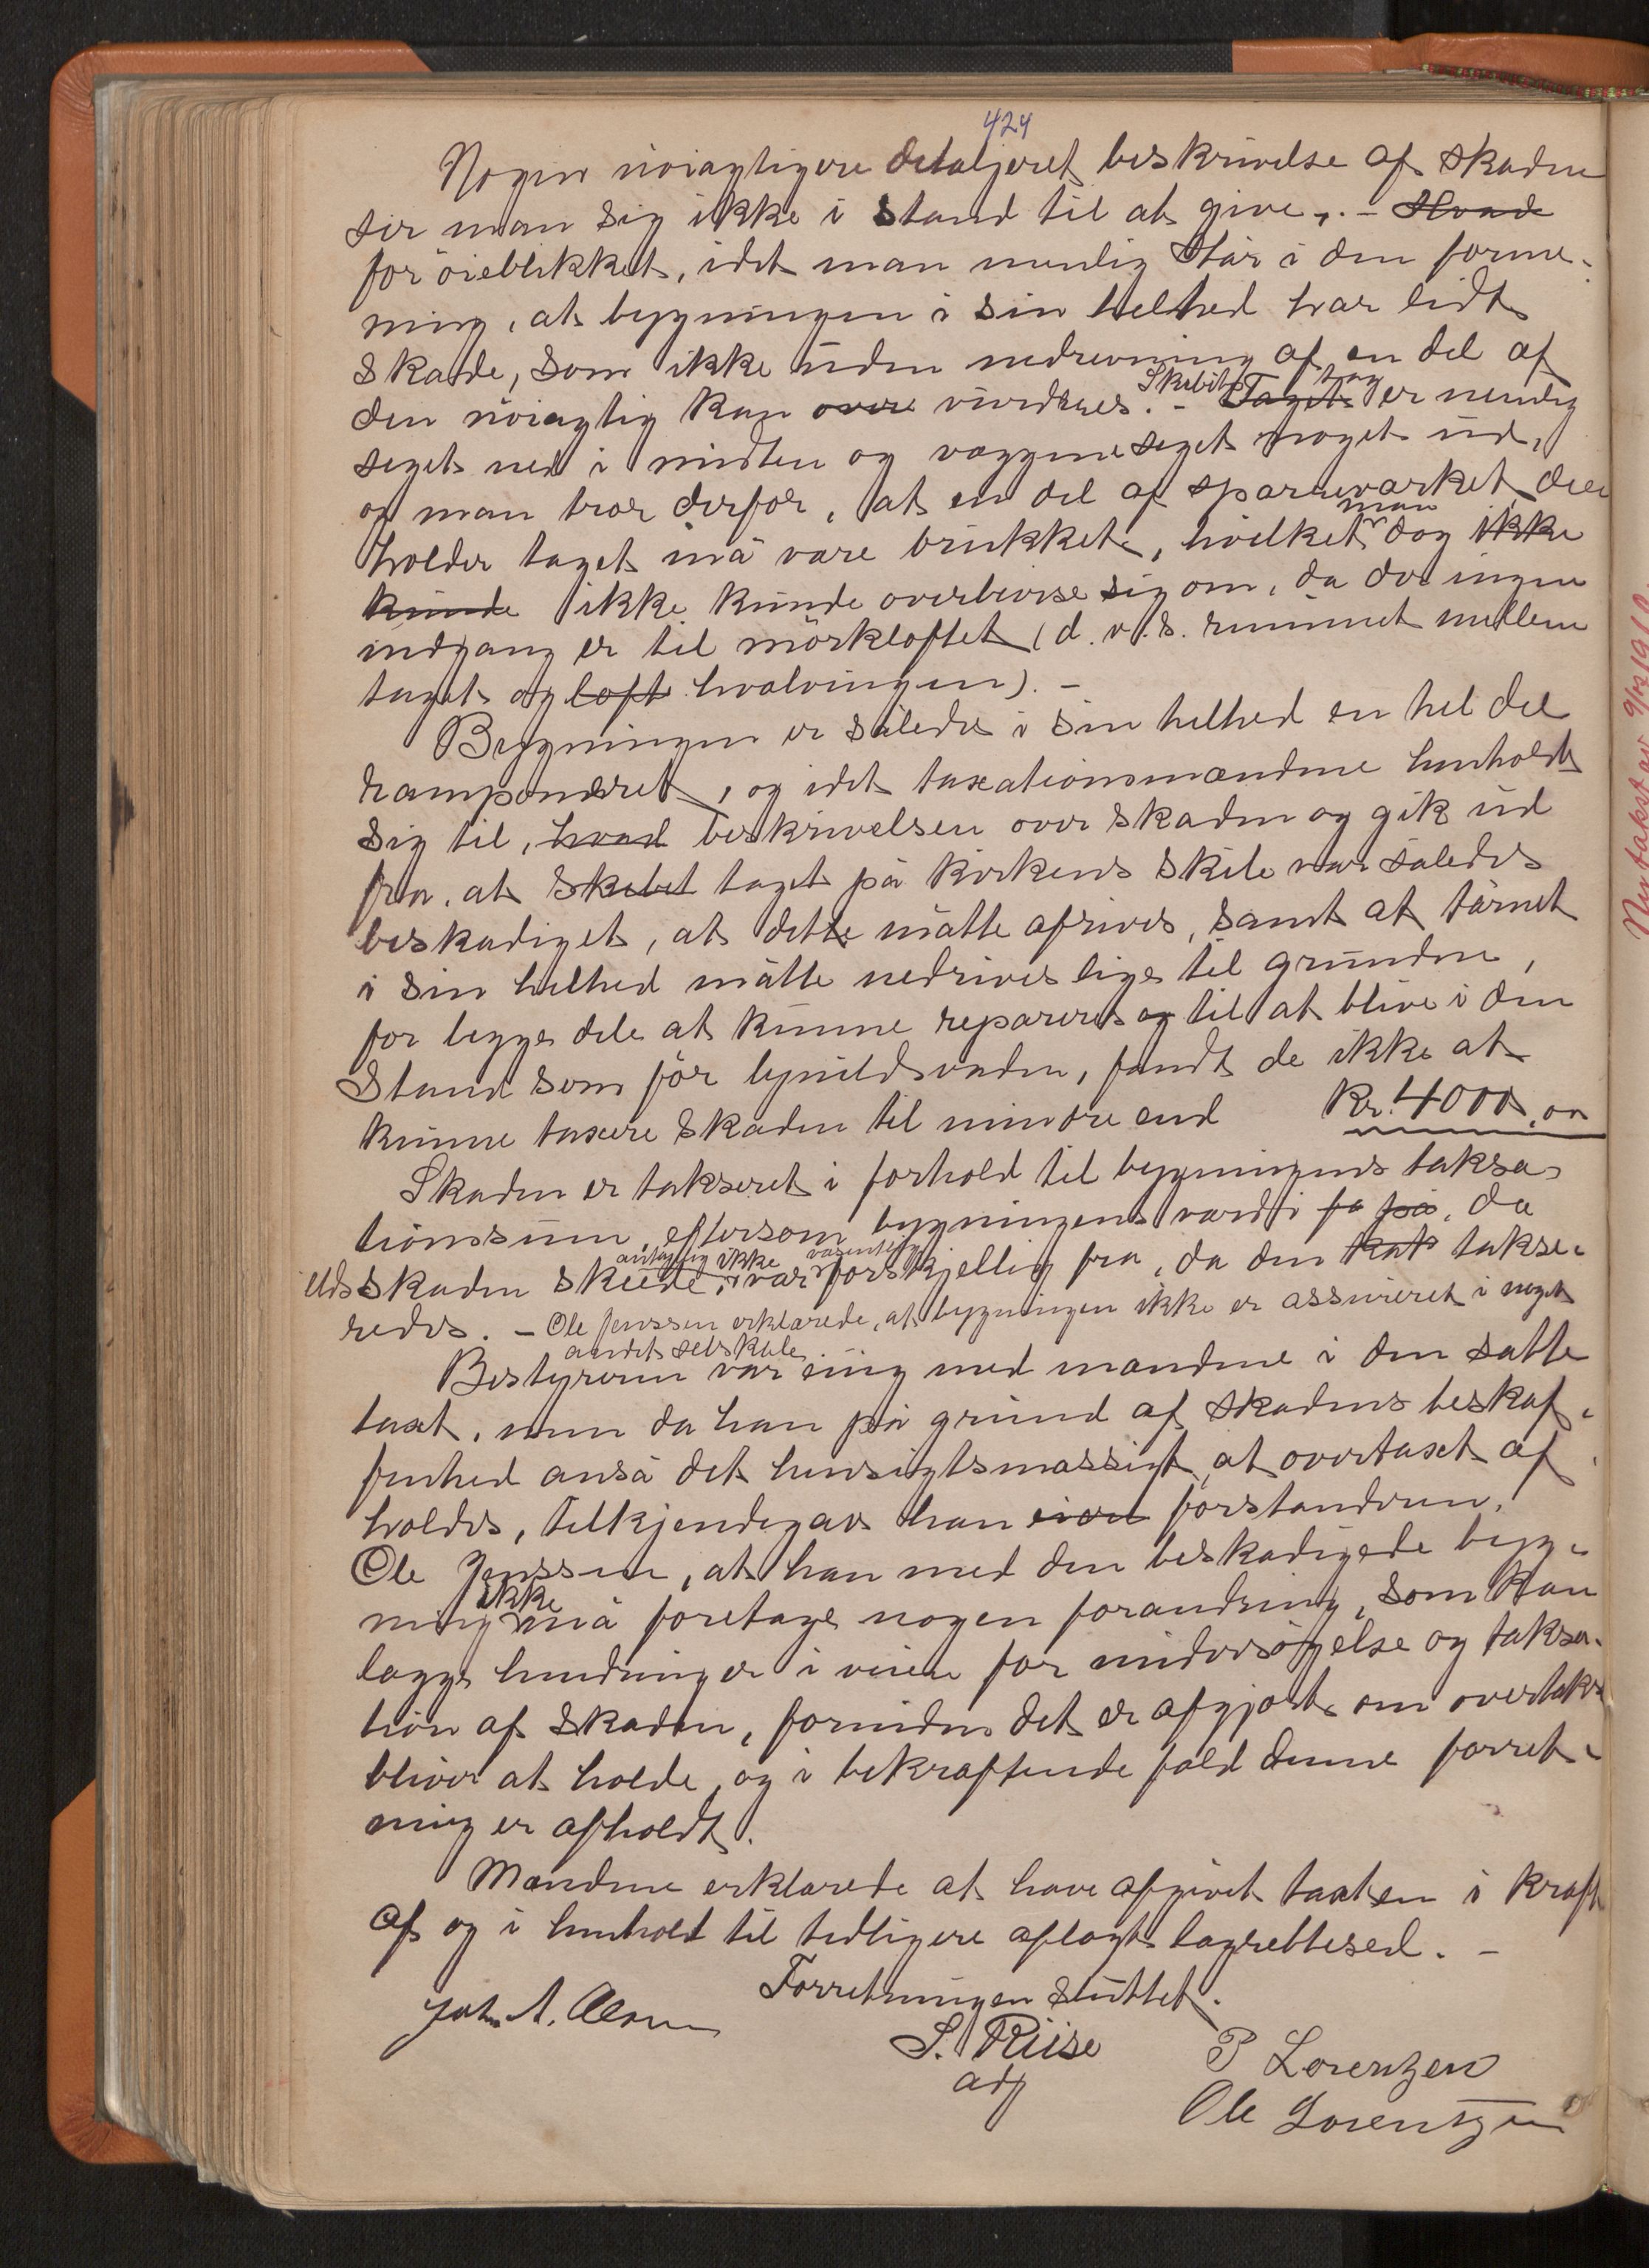 424
Nogen nöiagtigere detaljeret beskrivelse af skaden
ser man sig ikke i stand til at give, . - Hvad
for öieblikket, idet man nemlig står i den forme-
ning, at bygningen i sin helhed har lidt
skade, som ikke uden nedrivning af en del af
den nöiagtig kan vurderes. - Skibets Taget tag er nemlig
seget ned i midten og væggene seget noget ud,
og man tror derfor, at en del af sparreværket, der
holder taget må være brukket, hvilket man dog ikke
kunde ikke kunde overbevise sig om, da der ingen
indgang er til mörkloftet (d. v. s. rummet mellem
taget og loft hvælvingen). -
Bygningen er således i sin helhed en hel del
ramponeret, og idet taxationsmændene henholdt
sig til, hvad beskrivelsen over skaden og gik ud
fra, at skibet taget på kirkens skib var således
beskadiget, at dette måtte afrives, samt at tårnet
i sin helhed måtte nedrives lige til grunden,
for begge dele at kunne repareres og til at blive i den
stand som för lynildsvaden, fandt de ikke at
kunne taxere skaden til mindre end Kr. 4000,00
Skaden er takseret i forhold til bygningens taksa-
tionssum, eftersom bygningens værdi fo på, da
ildsskaden skede, antagelig ikke var væsentlig forskjellig fra, da den takse-
redes. - Ole Jenssen erklærede, at bygningen ikke er assureret i noget
andet selskab.
Bestyreren var enig med mændene i den satte
taxt, men da han på grund af skadens beskaf-
fenhed anså det hensigtsmæssigt, at overtaxt af
holdes, tilkjendegav han forstanderen,
Ole Jenssen, at han med den beskadigede byg-
ning ikke må foretage nogen forandring, som kan
lægge hindringer i veien for undersögelse og taksa-
tion af skaden, forinden det er afgjort om overtakst
bliver at holde, og i bekræftende fald denne forret-
ning er afholdt.
Mændene erklærede at have afgivet taxten i kraft
af og i henhold til tidligere aflagt lagrettesed. -
Forretningen sluttet.
Joh. A. Olsen
S. Riise
P Lorenzen
adj
Ole Lorentzen